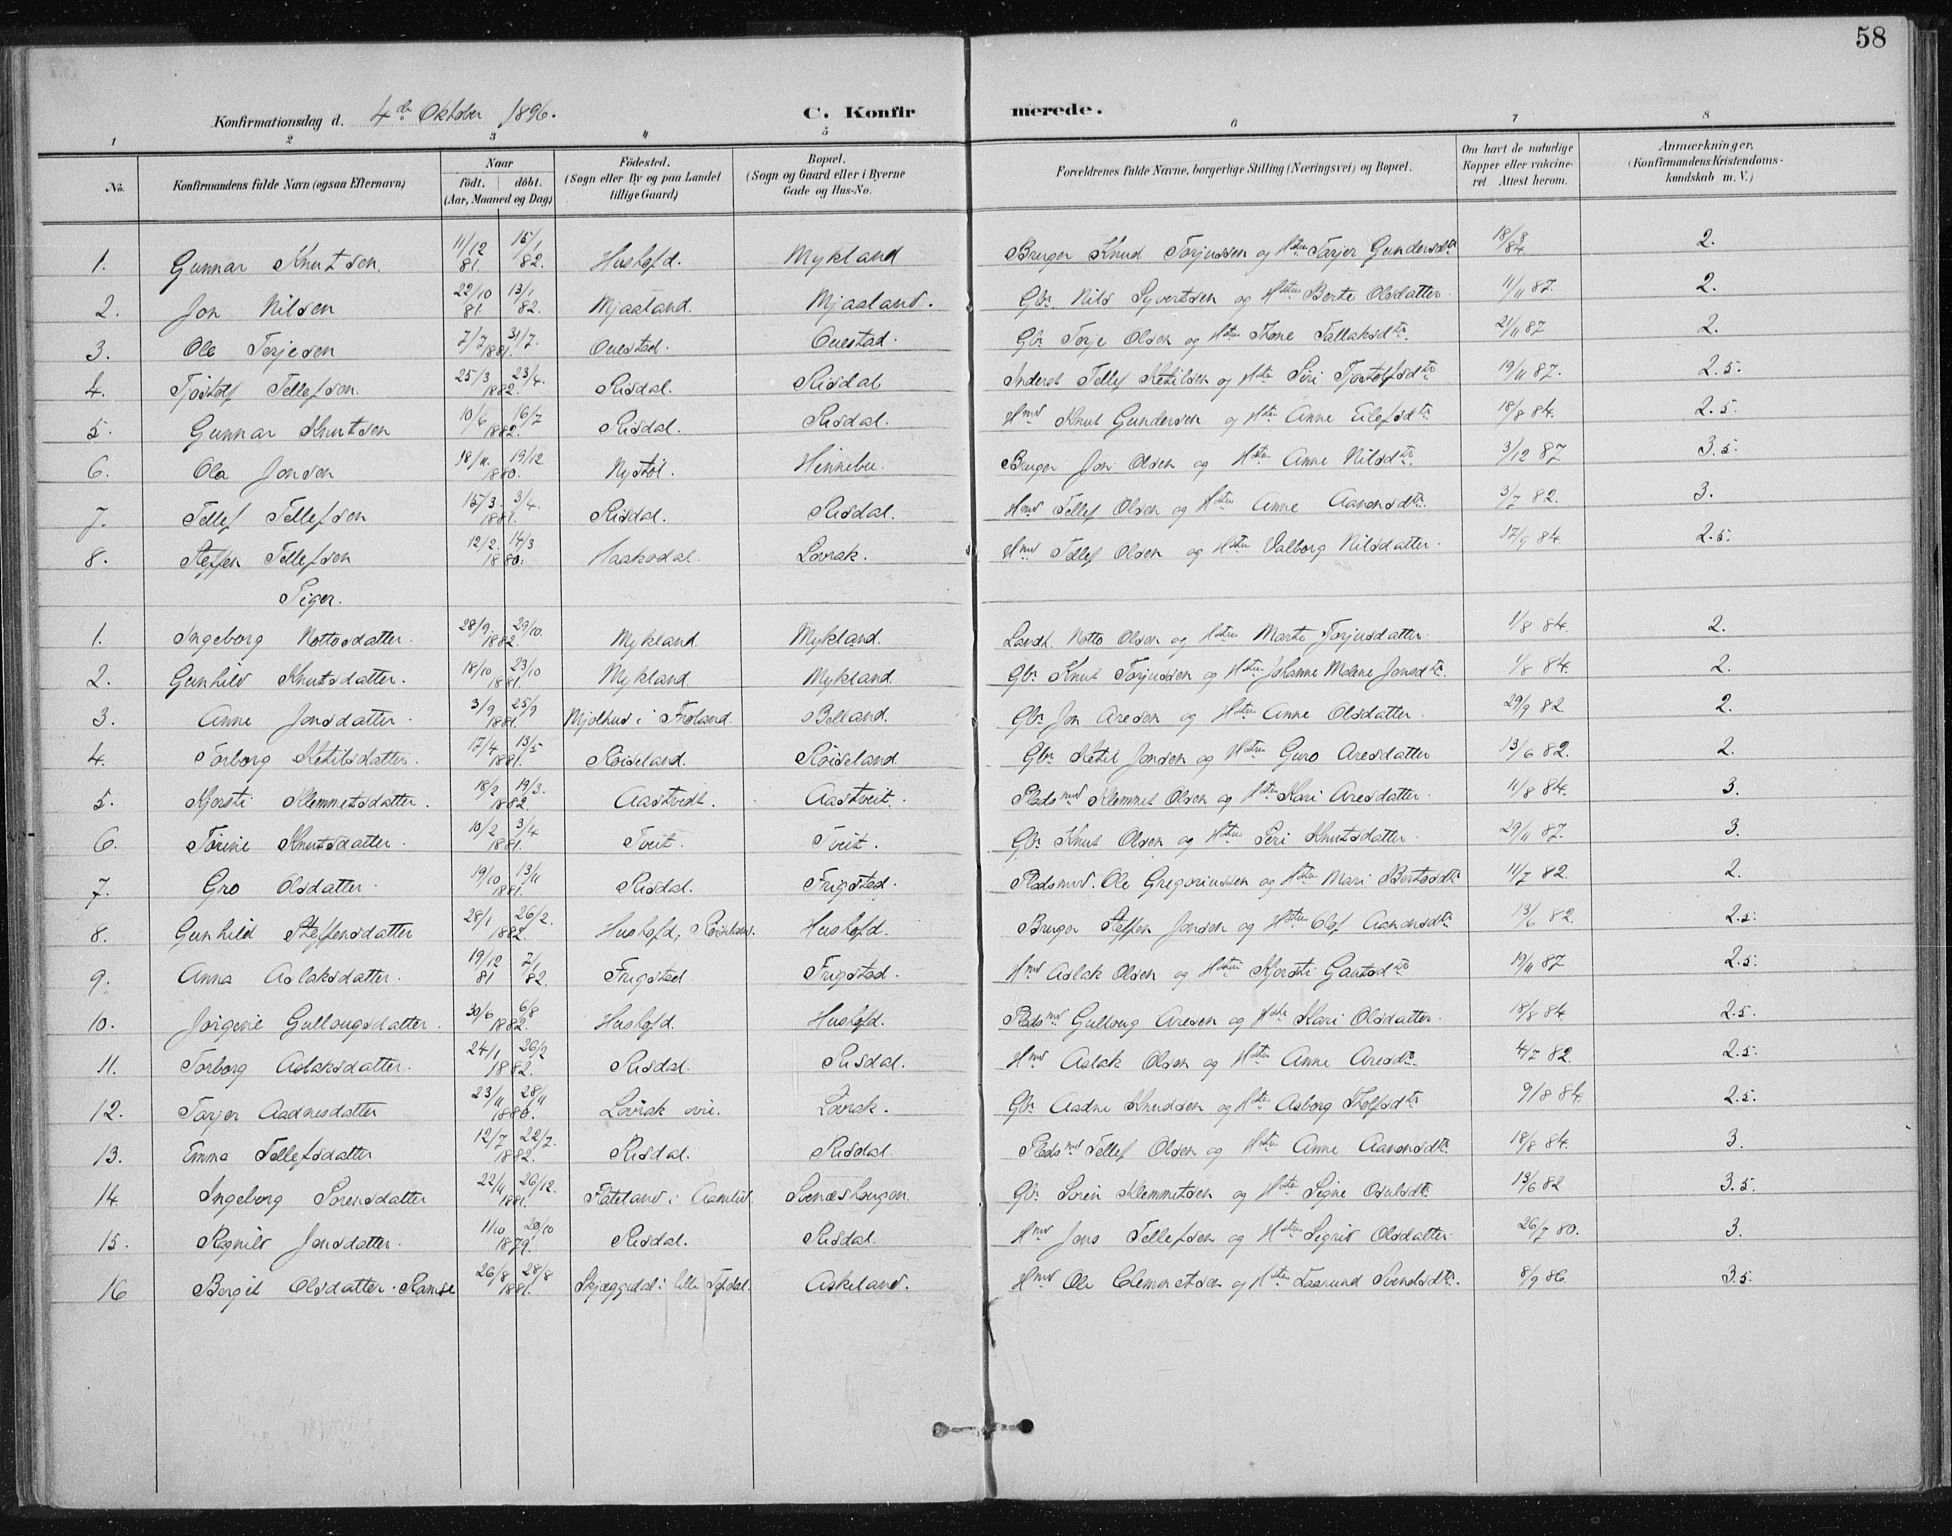 58
Konfirmationsdag d. 4de Oktober 1896. C. Konfirmerede.
1 2 3 4 5 6 7 8
No. Konfirmandens fulde Navn (ogsaa Efternavn) Naar födt. döbt. (Aar, Maaned og Dag) Födested. (Sogn eller By og paa Landet tillige Gaard) Bopæl. (Sogn og Gaard eller i Byerne Gade og Hus-No. Forældrenes fulde Navne, borgerlige Stilling (Næringsvei) og Bopæl. Om havt de naturlige Kopper eller vakcineret Attest herom. Anmærkninger. (Konfirmandens Kristendomskundskab m. V.)
1. Gunnar Knutsen. 11/12 81. 15/1 82. Husłofd. Mykland Bruger Knud Torjussen og Hstru Tarjer Gundersdtr 18/8 84. 2.
2. Jon Nilsen 22/10 81 13/1 82. Mjaaland. Mjaaland. Gbr. Nils Syvertsen og Hstru Berte Olsdatter 11/11 87. 2.
3. Ole Terjesen 7/7 31/7. 1881. Ouestad. Ouestad. Gbr Terje Olsen og Hstru Tone Tallaksdtr. 21/11 87 2.
4. Tjöstolf Tellefsen. 25/3 23/4. 1882. Risdal. Risdal Inderst Tellef Ketilsen og Hstr Siri Tjöstolfsdtr 19/11 87. 2.5.
5. Gunnar Knutsen 10/6 16/7 1882. Risdal. Risdal. Hmd Knut Gundersen og Hstru Anne Eilefsdtr. 18/8 84. 2.5.
6. Ola Jonsen 18/11. 19/12. 1880. Nystöl. Hinnebu. Bruger Jon Olsen og Hstru Anne Nilsdtr. 3/12 87 3.5.
7. Tellef Tellefsen 15/3. 3/4. 1881. Risdal. Risdal. Hmd Tellef Olsen og Hstru Anne Aanonsdtr. 3/7 82. 3.
8. Steffen Tellefsen 12/2. 14/3 1880. Haakodal. Lovrak. Hmd Tellef Olsen og Hstru Valborg Nilsdatter. 17/9 84. 2.5.
Piger.
1. Ingeborg Nottosdatter. 28/9. 29/10. 1882 Mykland. Mykland. Landh. Notto Olsen og Hstru Marte Torjusdatter. 1/8 84. 2.
2. Gunhild Knutsdatter. 18/10 23/10 1881. Mykland. Mykland Gbr Knut Torjussen og Hstru Johanne Malene Jonsdtr. 1/8 84. 2.
3. Anne Jonsdatter. 3/9 25/9 1881. Mjölhus i Froland. Belland. Gbr Jon Aresen og Hstr Anne Olsdatter. 29/9 82. 2.
4. Torborg Ketilsdatter. 17/4 13/5 1881. Röiseland. Röiseland. Gbr Ketil Jonsen og Hstru Guro Aresdatter 13/6 82. 2.
5. Kjersti Klemmetsdatter. 18/2 19/3. 1882. Aastvedt. Aastveit. Pladsmd Klemmet Olsen og Hstr Kari Aresdatter. 11/8 84. 3.
6. Torine Knutsdatter. 10/2 3/4 1881. Tveit. Tveit. Gbr Knut Olsen og Hstru Siri Knutsdatter. 29/11 87. 3.
7. Gro Olsdatter. 19/10 13/11 1881. Risdal. Frigstad. Pladsmd. Ole Gregoriussen og Hstru Mari Bertosdtr 11/7 82. 2.
8. Gunhild Steffensdatter 28/1 26/2. 1882. Husłofd, Röiseland. Husłofd. Bruger Steffen Jonsen og Hstru Olof Aanonsdtr. 13/6 82. 2.5.
9. Anna Aslaksdatter. 19/12 81 7/1 82. Frigsted Frigsted. Hmd Aslak Olsen og Hstru Kjersti Gautsdtr 19/11 87 2.5.
10. Jörgine Gullougsdatter. 30/6 6/8 1882. Husłofd. Husłofd. Pladsmd Gulloug Aresen og Hstr Kari Olsdatter. 18/8 84. 2.5.
11. Torborg Aslaksdatter. 24/1 26/2 1882. Risdal. Risdal. Hmd Aslak Olsen og Hstru Anne Aresdtr. 4/7 82. 2.5.
12. Tarjer Aadnesdatter 23/11 28/11 1880. Lovrak övre. Lovrak. Gbr Aadne Knudsen og Hstru Asborg 9/8 84. 2.5.
13. Emma Tellefsdatter 12/7 22/7. 1882. Risdal. Risdal Pladsmd Tellef Olsen og Hstru Anne Aanonsdtr. 18/8 84. 3.
14. Ingeborg Sörensdatter 22/11 26/12. 1881. Flateland i Aamlid. Svenæshougen. Gbr. Sören Klemmetsen og Hstr Signe Osulsdtr. 13/6 82 3.5.
15. Ragnild Jonsdatter. 1/10 20/10 1879. Risdal. Risdal. Hmd Jens Tellefsen og Hstru Sigrid Olsdatter. 26/7 80. 3.
16 Bergit Olsdatter Ramse 26/8 28/8 1881. Skjæggedal i lille Tofdal. Askeland. Hmd Ole Clemmetsen og Hstru Taarund Svendsdtr. 8/9 86. 3.5.